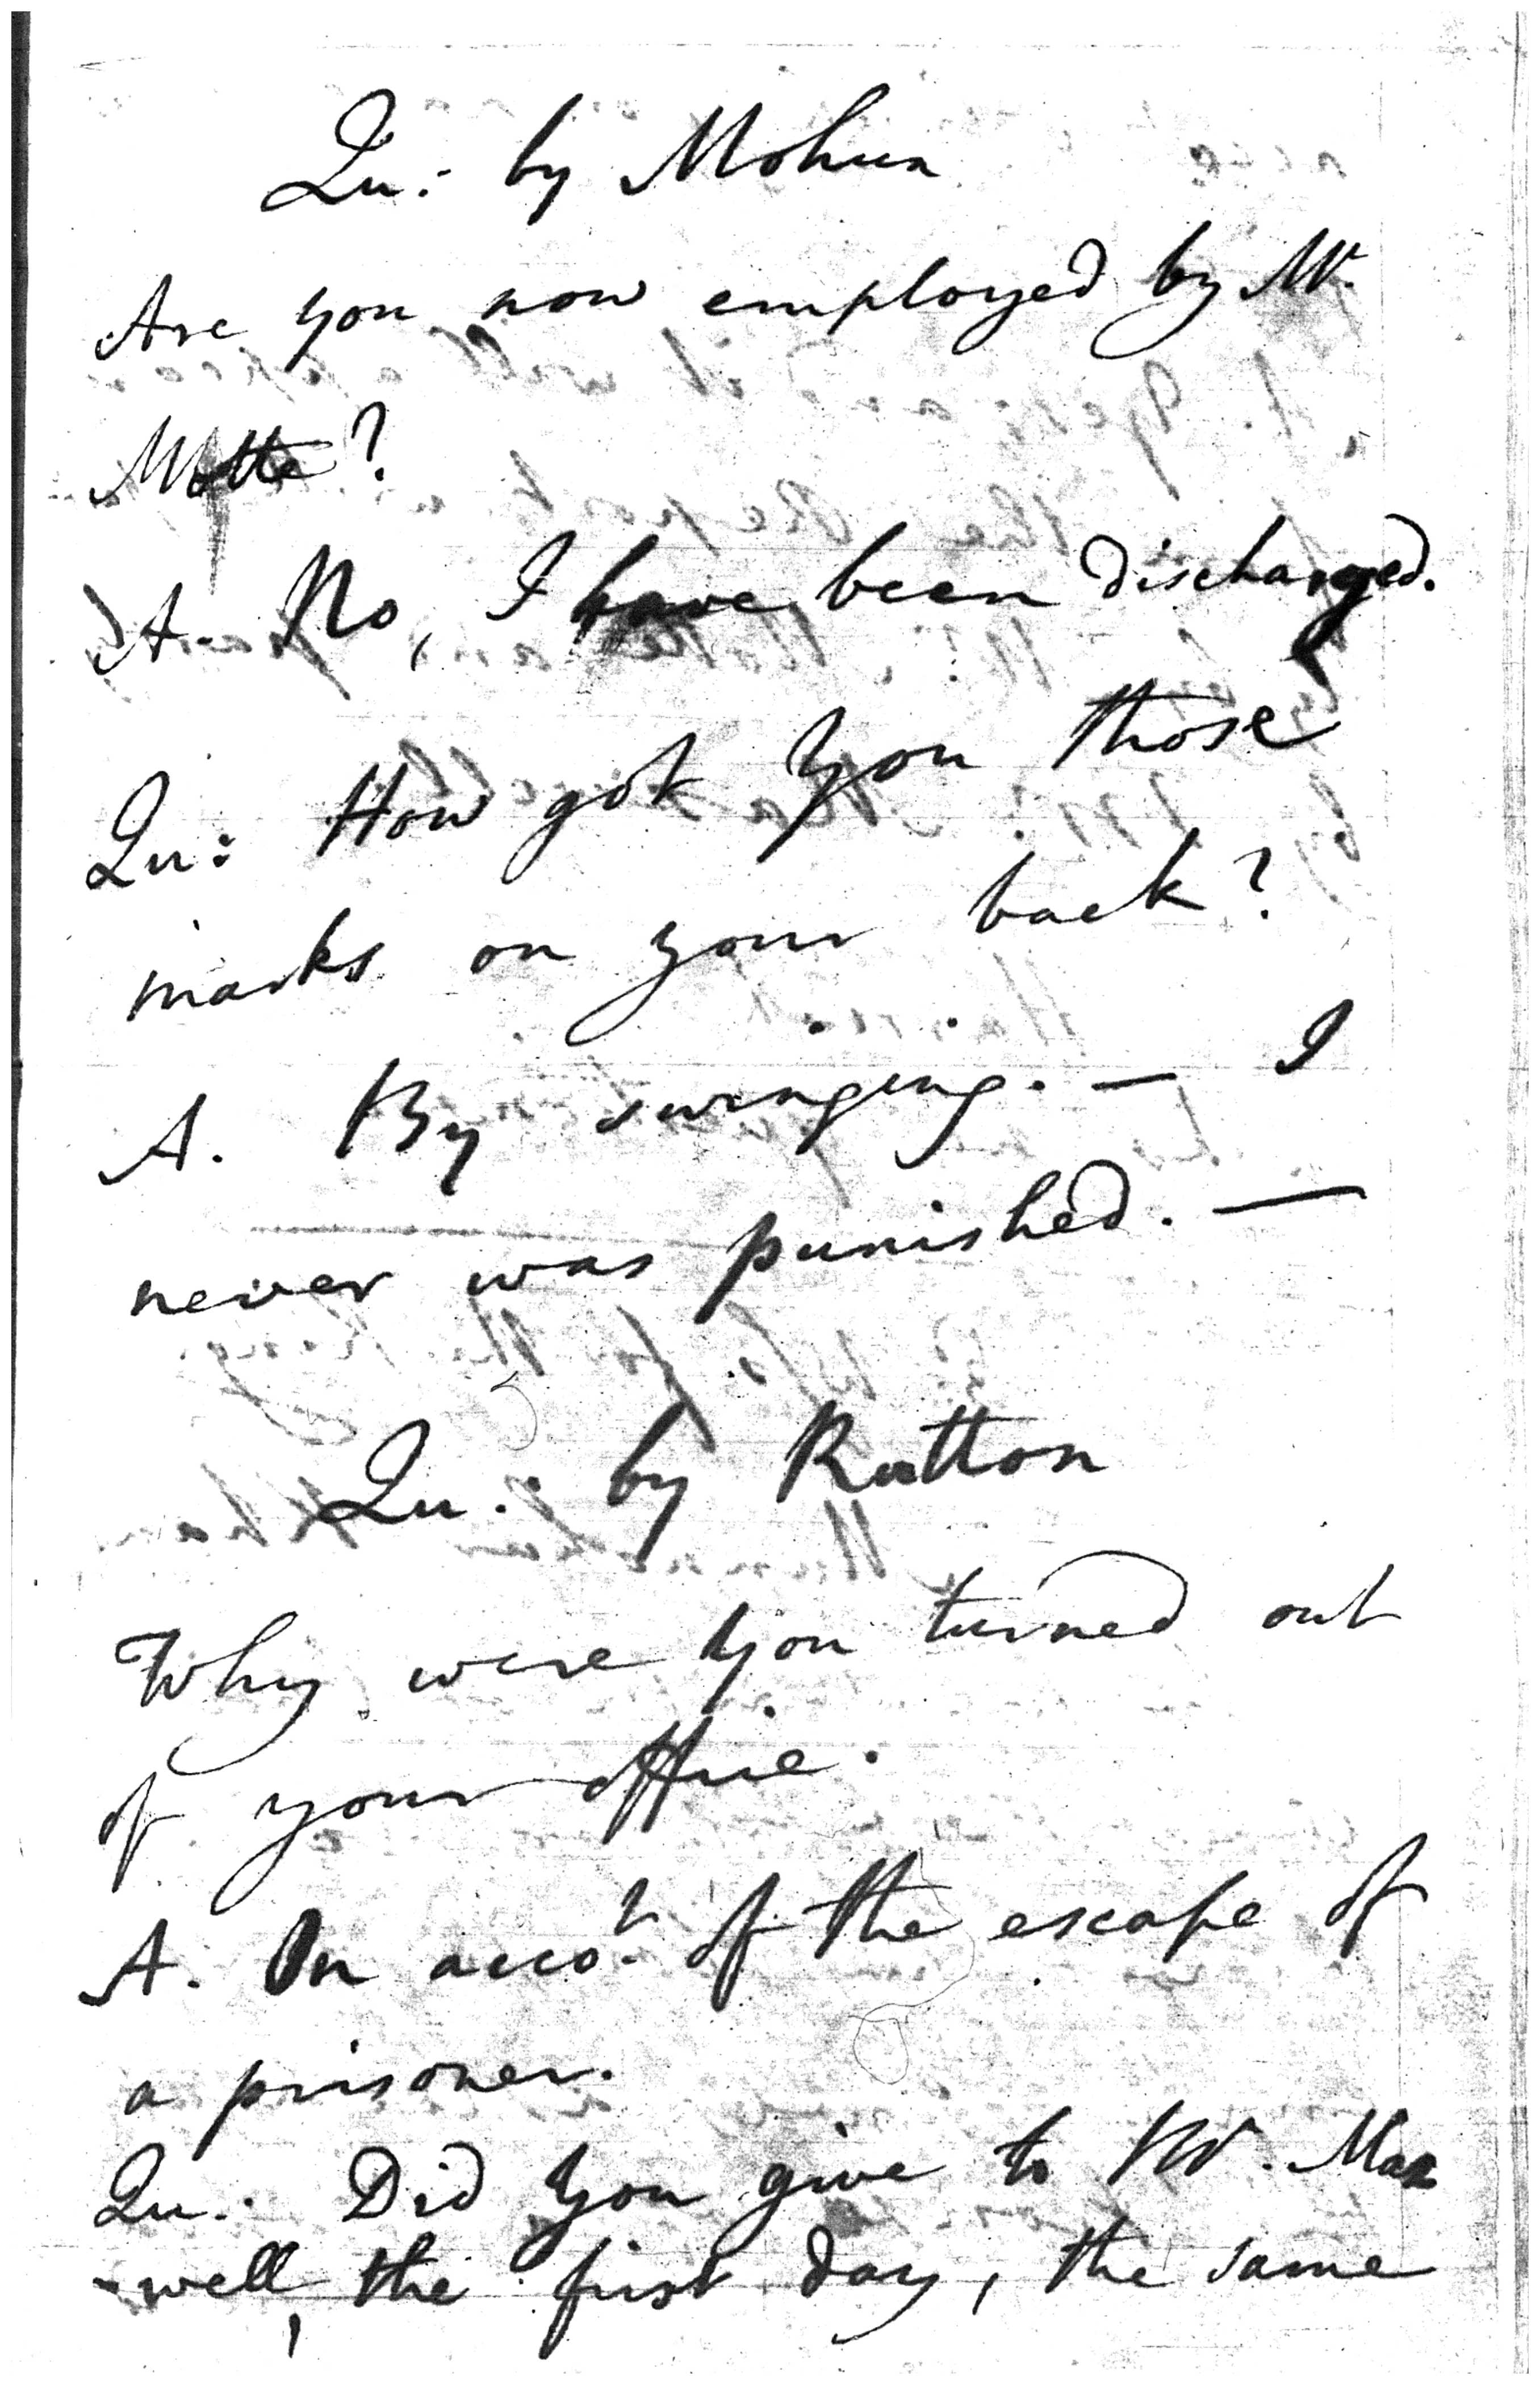 Qu: by Mohun
Are you now employed by Mr.
Motte?
A. No, I have been discharged.
Qu: How got you those
marks on your back?
A. By swinging. — I
never was punished. —
Qu: by Rutton
Why were you turned out
of your office.
A. On accot. of the escape of
a prisoner.
Qu: Did you give to Mr. Max
-well, the first day, the same